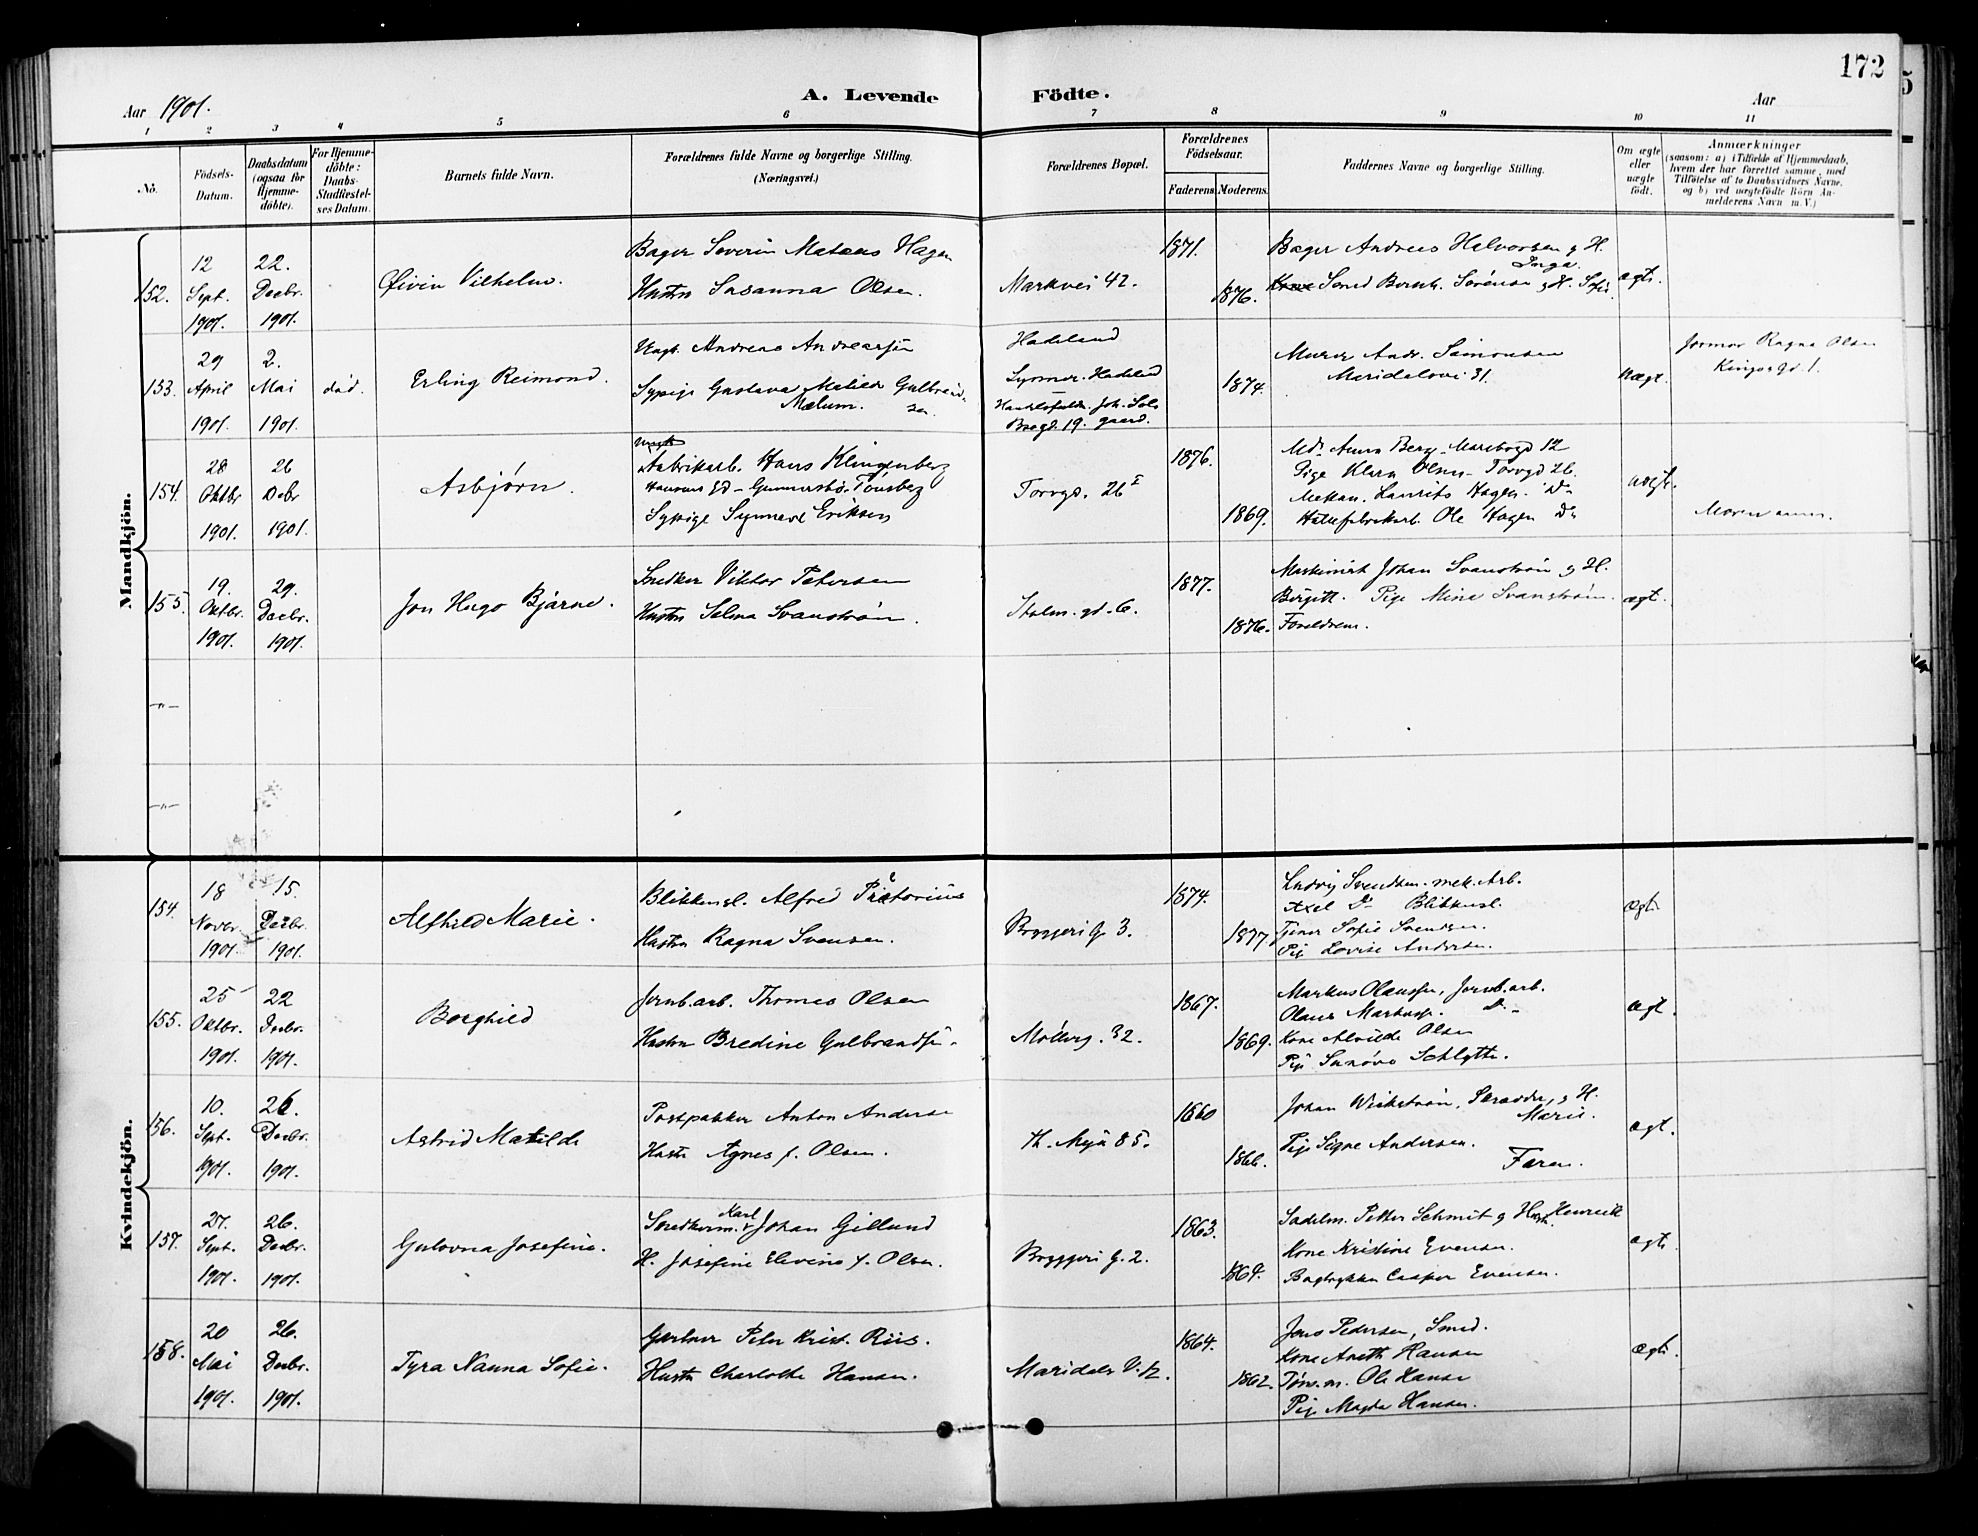 172
Aar 1901.
A. Levende Födte.
Aar
1 2 3 4 5 6 7 8 9 10 11
No.
Födsels-Datum.
Daabsdatum (ogsaa for Hjemme-döbte).
For Hjemme-döbte: Daabs-Stadfæstel-ses Datum.
Barnets fulde Navn.
Forældrenes fulde Navne og borgerlige Stilling. (Næringsvei.)
Forældrenes Bopæl.
Forældrenes Födselsaar.
Faderens. Moderens.
Faddernes Navne og borgerlige Stilling.
Om ægte eller uægte födt.
Anmærkninger
(saasom: a) i Tilfælde af Hjemmedaab, hvem der har forrettet samme, med Tilföielse af to Daabsvidners Navne, og b) ved uægtefödte Börn Anmelderens Navn m. V.)
Mandkjön.
152. 12 Sept. 1901. 22. Decbr. 1901.
Øivin Vilhelm.
Bager Severin Hagen
Hustru Susanna Olsen.
Markvei 42.
1871.
1876.
Bager Andreas Halvorsen & H. Inga.
Smed Bernh. Sørensen & H. Sofie
ægte.
153. 29 April 1901. 2. Mai 1901. død.
Erling Reimond.
Ungk. Andreas Andreassen
Sypige Gustava Matilde Gulbrandsen
Mælum.
Hadeland
Hadeland
1874.
Murer Andr. Simonsen
Maridalsvei 31.
Uægt.
Jormor Ragna Olsen
Kingosgd. 1.
154. 28 Oktbr 1901. 26 Decbr 1901.
Asbjørn.
Ungk.
Fabrikarb. Hans Klingenberg
Hansen Tønsberg
Sypige Eriksen
Torvgd. 26 I
1876.
1869.
Md. Anna Berg
Pige Klara Olsen Torvgd 26.
Mekan. Laurits Hagen. Do
Ole Hagen Do
uægte.
Moren
155. 19. Oktbr. 1901. 29. Decbr. 1901.
Jon Hugo Bjarne.
Snedker Viktor Petersen
Hustru Selma Svanstrøm.
Holm. gd. 6.
1877.
1876.
Maskinist Johan Svanstrøm & H.
Birgitte. Pige Mina Svanstrøm.
Foreldrene.
ægt.
-"-
-"-
Kvindekjön.
154. 18 Novbr. 1901. 15. Decbr. 1901.
Alfhild Marie.
Blikkensl. Alfred Pretorius
Hustru Ragna Svensen.
Bryggeri G. 3.
1874.
1877.
Ludvig Svendsen. mek. Arb.
Axel Do Blikkensl.
Sofie Svendsen.
Pige Lovise Andersen.
ægt.
155. 25 Oktbr. 1901. 22 Decbr. 1901.
Borghild
Jernb.arb. Thomas Olsen
Hustru Bredine Gulbrandsen.
Møllerg. 32.
1867.
1869.
Markus Olaussen, Jernb.arb.
Olaus Do
Kone Alvilde Olsen
Pige Sunøva Schlytte.
ægt.
156. 10. Sept. 1901. 26. Decbr. 1901.
Astrid Matilde
Postpakker Anton Andersen
Hustr Agnes f. Olsen.
Th. Meyers 85.
1860
1866.
Johan Wickstrøm, Skrædder, & H. Marie.
Pige Signe Andersen.
Faren.
ægt.
157. 27. Sept. 1901. 26. Decbr. 1901.
Gulovna Josefine.
Snedkerm. Karl Johan Gillund
H. Josefine Elevine f. Olsen.
Bryggeri G. 2.
1863.
1864.
Sadelm. Petter Schmit & Henrik
Kone Kristine Evensen.
Bogtrykker Casper Evensen.
ægt.
158. 20 Mai 1901. 26. Decbr. 1901.
Tyra Nanna Sofie.
Gartner Peter Krist. Riis.
Hustr Charlotte Hansen.
Maridals V. 12.
1864.
1862.
Jens Pedersen, Smed.
Kone Aneth Hansen
Tøm.m. Ole Hansen
Pige Magda Hansen.
ægt.